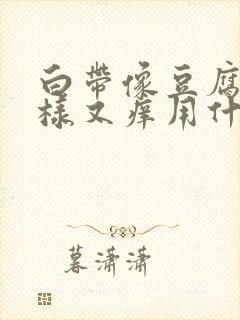 白带像豆腐
样又痒用什
暮潇潇